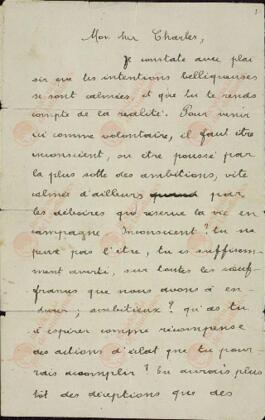 1
Mon cher Charles,
Je constate avec plai
sir que les intentions belliqueuses
se sont calmées, et que tu te rends
compte de la réalité. Pour venir
ici comme volontaire, il faut être
inconscient, ou être poussé par
la plus sotte des ambitions, vite
calmée d'ailleurs quand par
les déboires que réserve la vie en
campagne Inconscient? tu ne
peux pas l'être, tu es suffisam-
ment averti, sur toutes les souf-
frances que nous avons à en-
durer; ambitieux? qu'as tu
à espérer comme récompense
des actions d'éclat que tu pour
rais accomplir? Tu aurais plus
tôt des déceptions que des